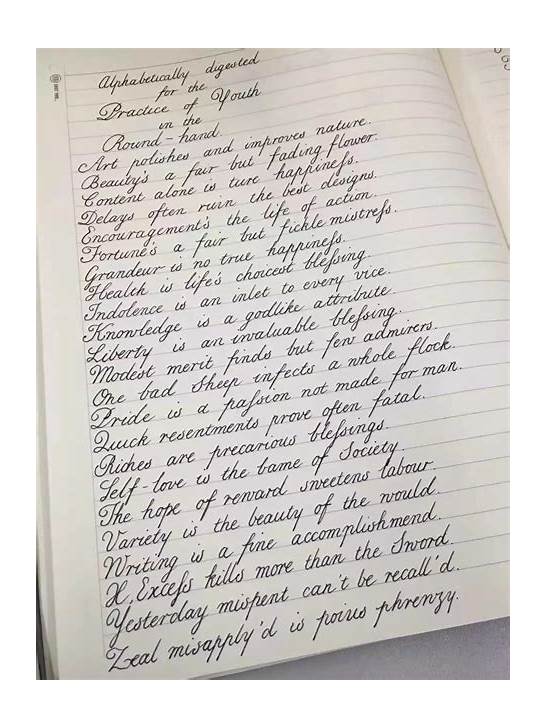 Alphabetically digested
for the
Practice of Youth
in the
Round-hand.
Art polishes and improves nature.
Beauty's a fair but fading flower.
Content alone is ture happineſs.
Delays often ruin the best designs.
Encouragement's the life of action.
Fortune's a fair but fickle mistreſs.
Grandeur is no true happineſs.
Health is life's choicest bleſsing.
Indolence is an inlet to every vice.
Knowledge is a godlike attribute.
Liberty is an invaluable bleſsing.
Modest merit finds but few admirers.
One bad Sheep infects a whole flock.
Pride is a paſsion not made for man.
Quick resentments prove often fatal.
Riches are precarious bleſsings.
Self-love is the bame of Society.
The hope of reward sweetens labour.
Variety is the beauty of the would.
Writing is a fine accomplishmend.
X, Exceſs kills more than the Sword.
Yesterday mispent can't be recall'd.
Zeal misapply'd is poius phrenzy.